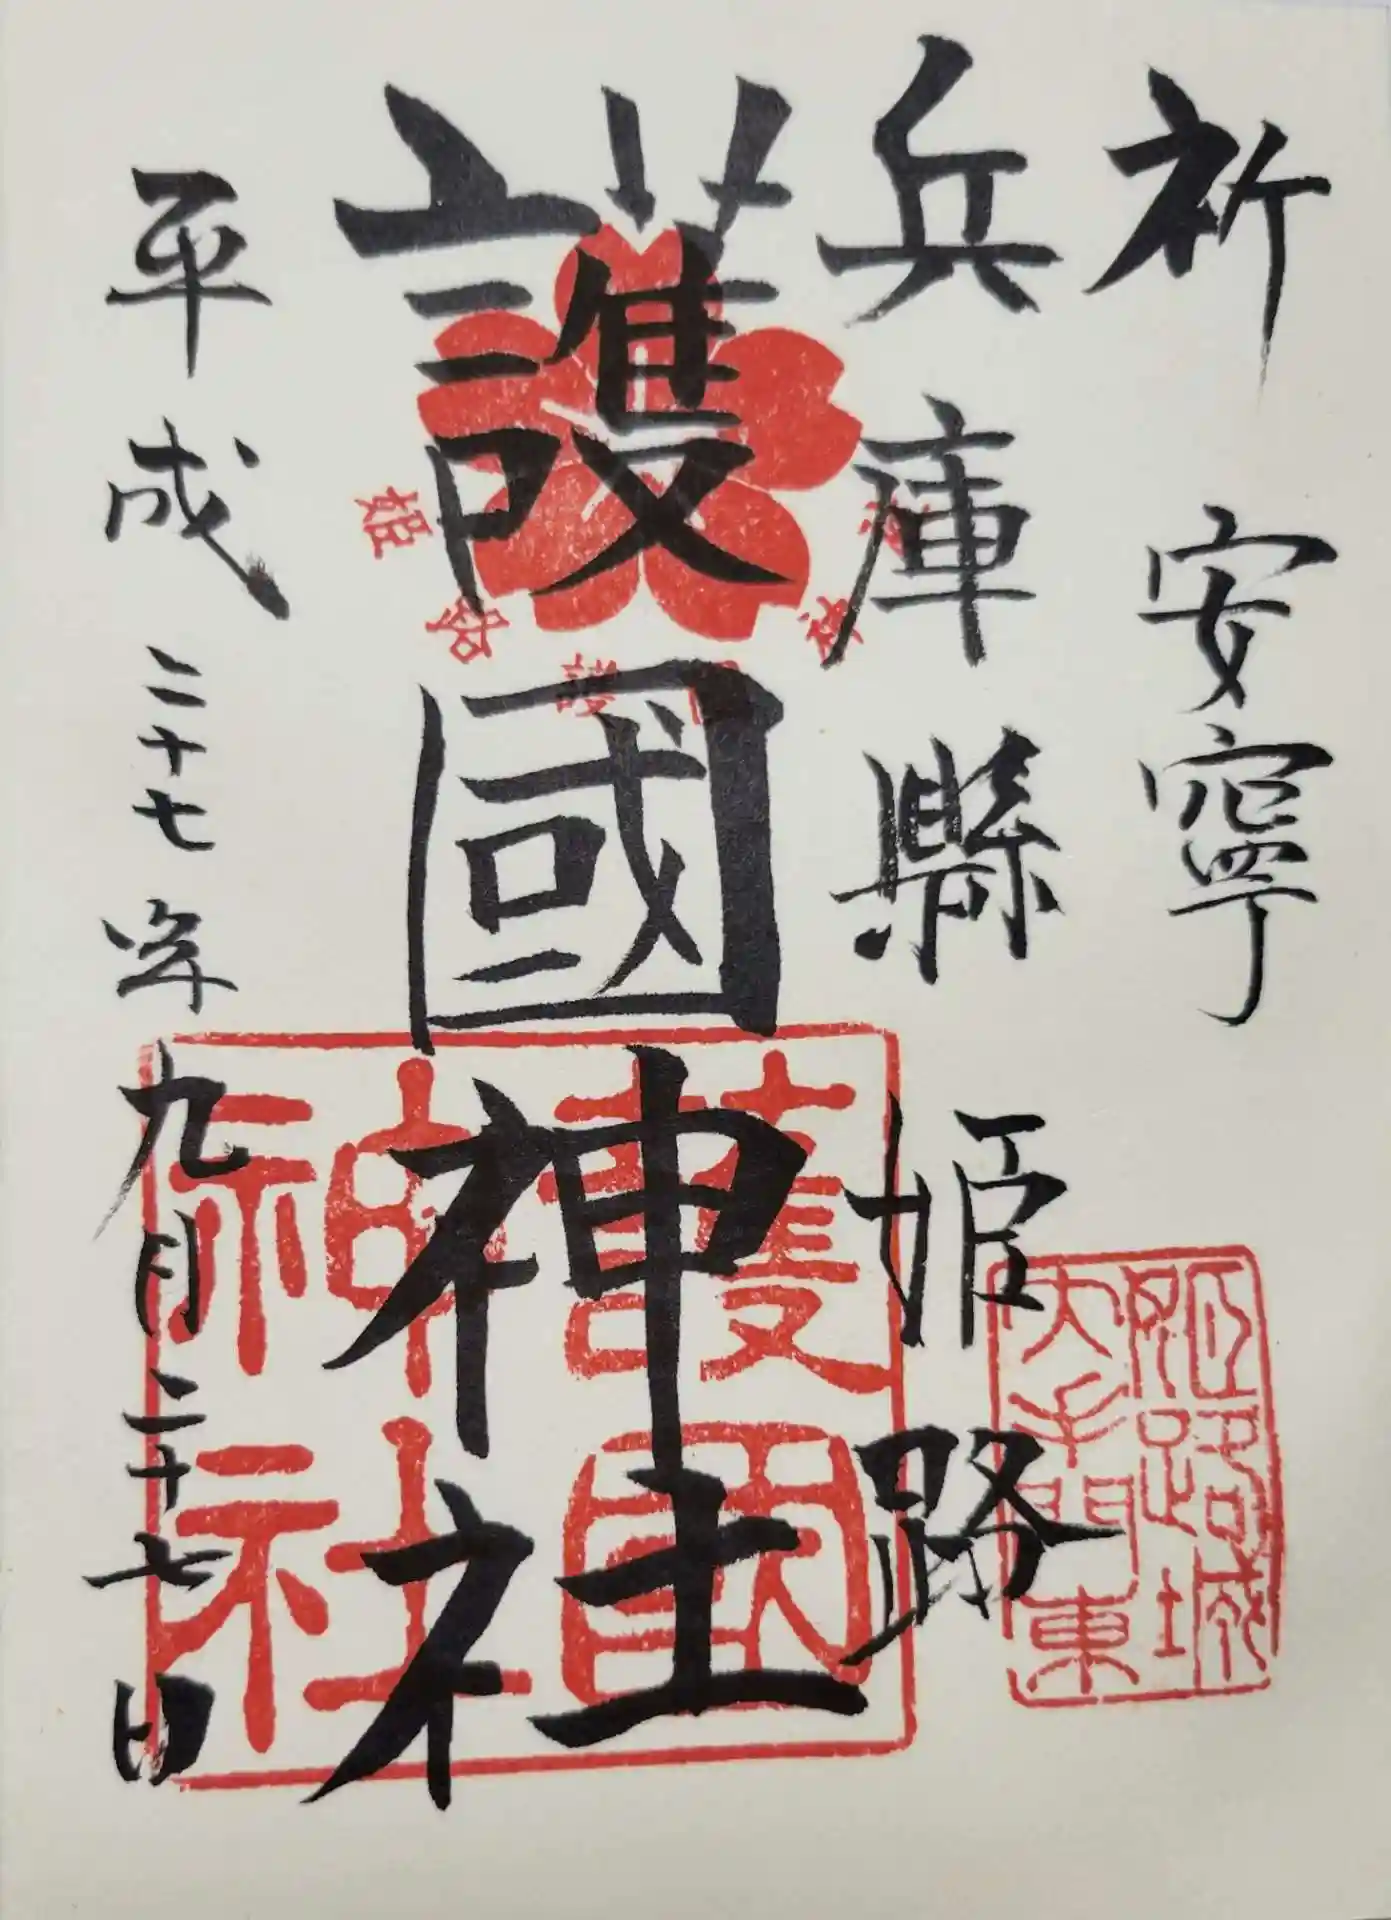 祈 安寧
兵庫縣 姫路
護國神社
平成二十七年九月二十七日
姫路城
大手門東
護國
神社